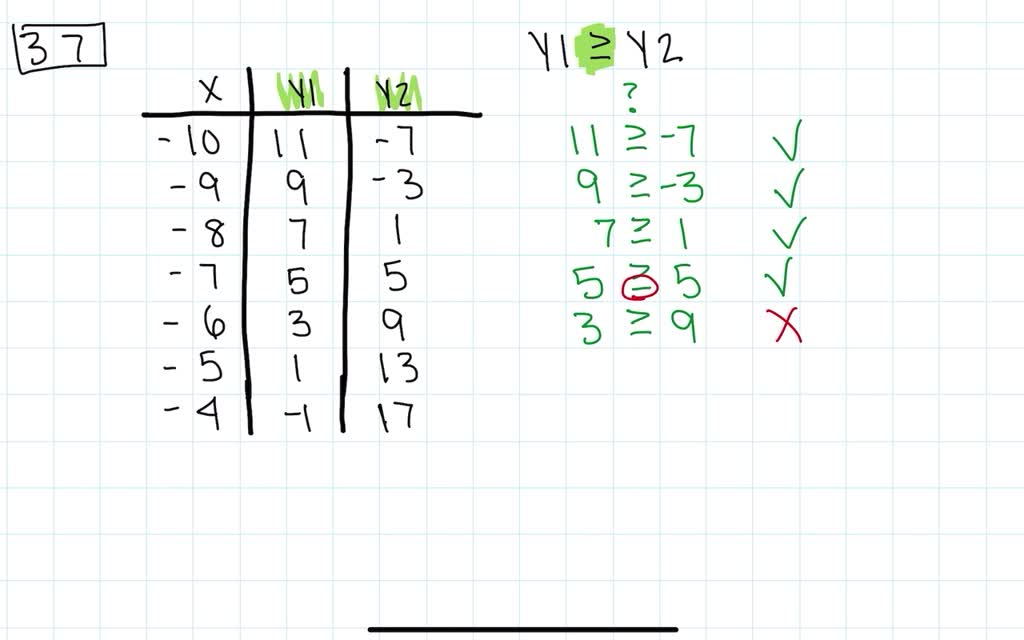 37
Y1 ≥ Y2
X Y1 Y2
-10 11 -7
-9 9 -3
-8 7 1
-7 5 5
-6 3 9
-5 1 13
-4 -1 17
?
11 ≥ -7 ✓
9 ≥ -3 ✓
7 ≥ 1 ✓
5 ≥ 5 ✓
3 ≥ 9 X